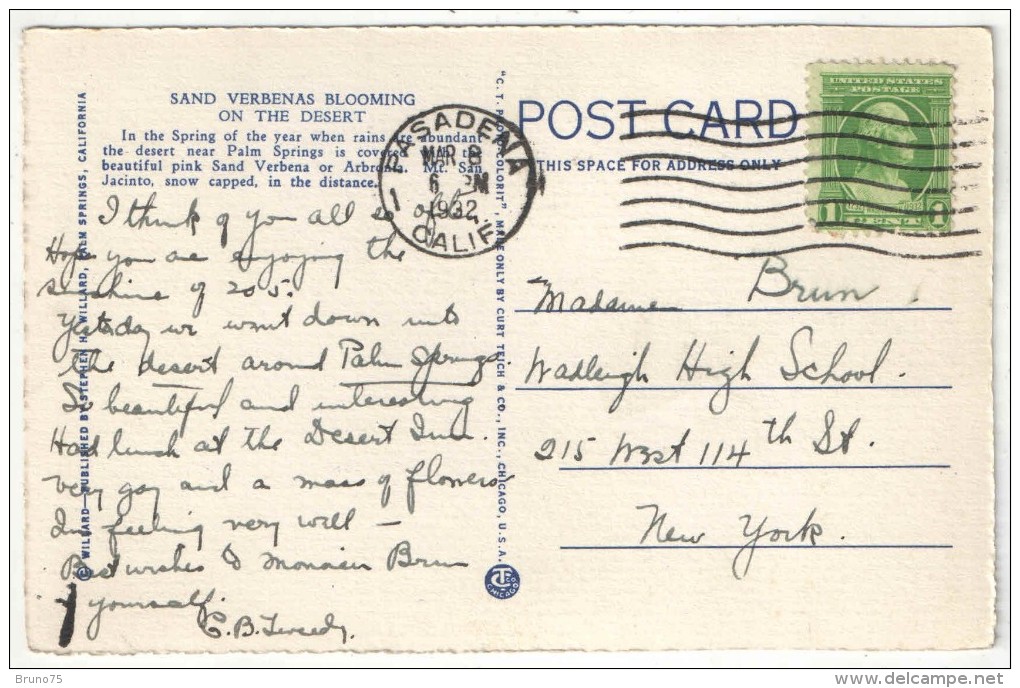 SAND VERBENAS BLOOMING
ON THE DESERT
In the Spring of the year when rains are abundant
the desert near Palm Springs is covered with the
beautiful pink Sand Verbena or Arbronia. Mt. San
Jacinto, snow capped, in the distance.
I think of you all so often.
Hope you are enjoying the
sunshine of 205.
Yesterday we went down into
the desert around Palm Springs
So beautiful and interesting
Had lunch at the Desert Inn.
very gay and a mass of flowers
Im feeling very well –
Best wishes to Monsieur Brun
yourself.
C.B. Tweedy.
© WILLARD—PUBLISHED BY STEPHEN H. WILLARD, PALM SPRINGS, CALIFORNIA
"C. T. PHOTO COLORIT", MADE ONLY BY CURT TEICH & CO., INC., CHICAGO, U.S.A.
CT CHICAGO
POST CARD
THIS SPACE FOR ADDRESS ONLY
PASADENA
MAR 8
6 PM
1932
CALIF.
1
UNITED STATES
POSTAGE
1 CENT 1
Madame Brun,
Wadleigh High School.
215 West 114th St.
New York.
Bruno75
delcampe.net